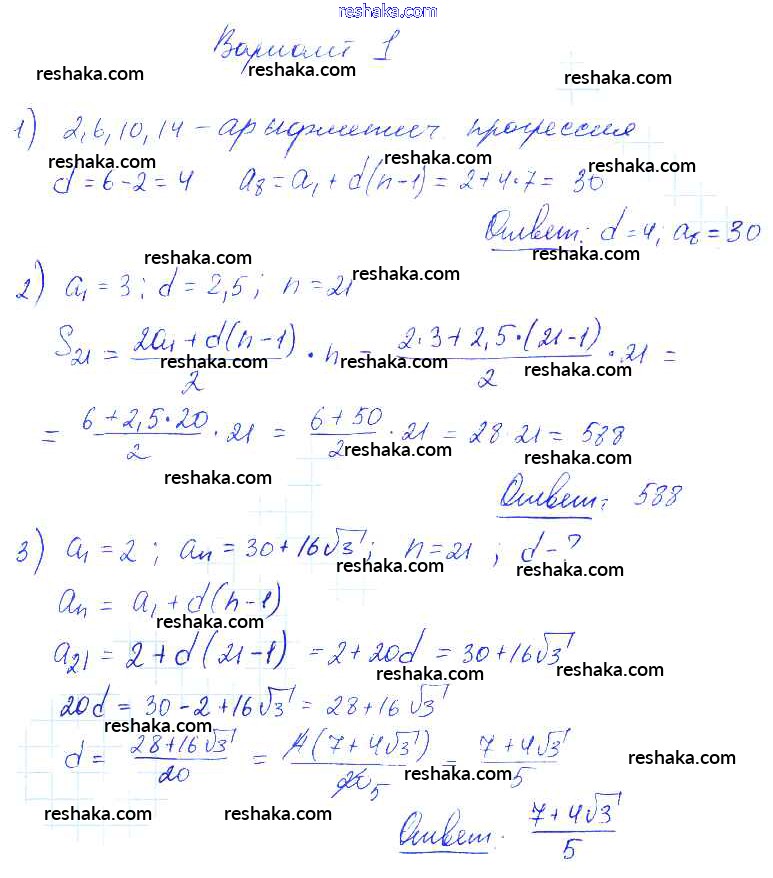 reshaka.com
Вариант 1
reshaka.com reshaka.com reshaka.com
1) 2, 6, 10, 14 – арифметич. прогрессия
reshaka.com reshaka.com reshaka.com
d = 6 - 2 = 4 a₈ = a₁ + d(n-1) = 2 + 4·7 = 30
reshaka.com
Ответ: d = 4; a₈ = 30
reshaka.com reshaka.com
2) a₁ = 3; d = 2,5; n = 21
reshaka.com
S₂₁ = (2a₁ + d(n-1))/2 · n = (2·3 + 2,5·(21-1))/2 · 21 =
reshaka.com reshaka.com
= (6 + 2,5·20)/2 · 21 = (6 + 50)/2 · 21 = 28·21 = 588
reshaka.com reshaka.com
reshaka.com
Ответ: 588
3) a₁ = 2; aₙ = 30 + 16√3; n = 21; d - ?
reshaka.com reshaka.com
aₙ = a₁ + d(n-1)
reshaka.com
a₂₁ = 2 + d(21-1) = 2 + 20d = 30 + 16√3
reshaka.com
20d = 30 - 2 + 16√3 = 28 + 16√3
reshaka.com reshaka.com
d = (28 + 16√3)/20 = 4(7 + 4√3)/20 5 = (7 + 4√3)/5
reshaka.com reshaka.com
reshaka.com reshaka.com reshaka.com
Ответ: (7 + 4√3)/5